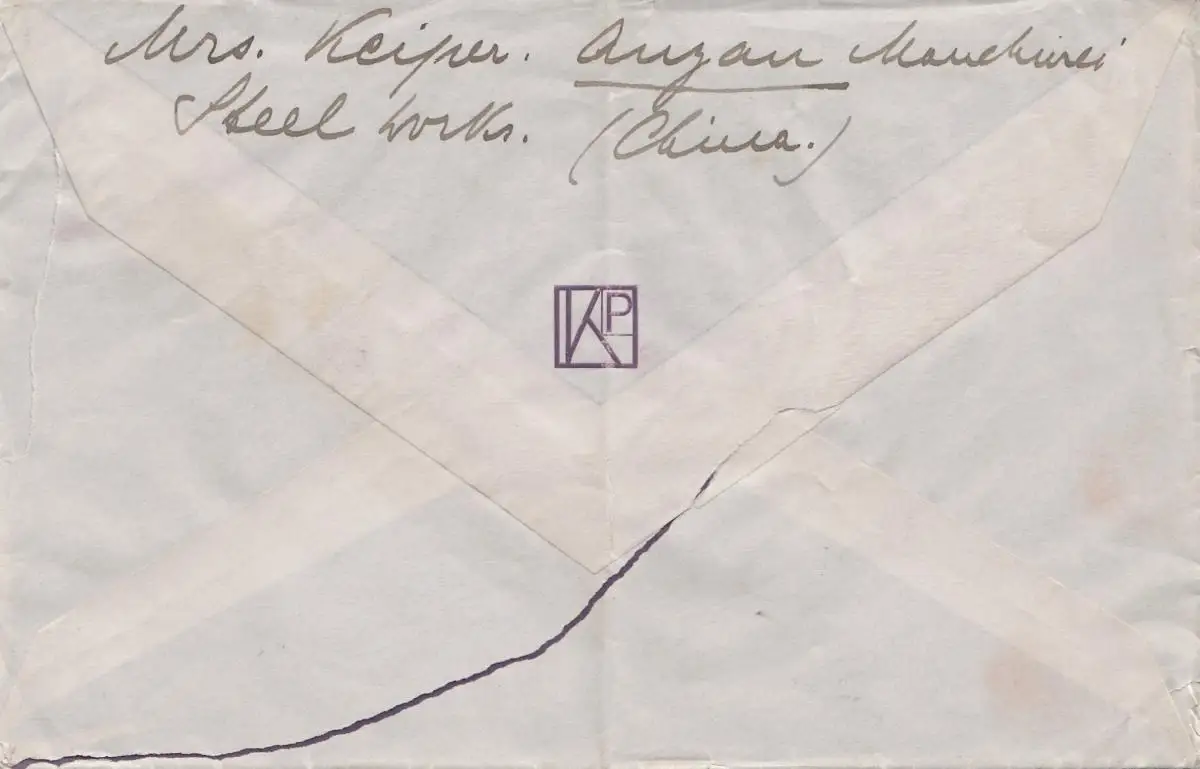 Mrs. Keiper. Anzan Manchurei
Steel works. (China.)
KP